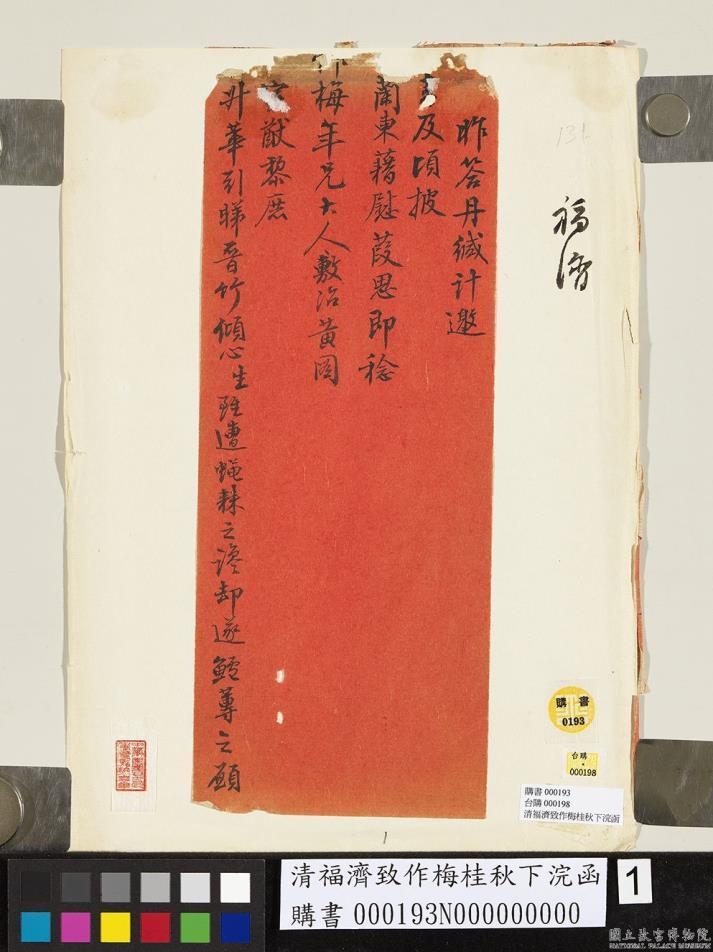 昨答丹緘計邀
及頃披
蘭東藉慰葭思即稔
梅年兄大人敷治黃岡
猷黎庶
升華引睇晉竹傾心生雖遭蠅棘之讒却遂鱸蓴之願
福濟
131
購書
0193
台購
000198
購書 000193
台購 000198
清福濟致作梅桂秋下浣函
1
清福濟致作梅桂秋下浣函
購書 000193N000000000
1
國立故宮博物院
NATIONAL PALACE MUSEUM